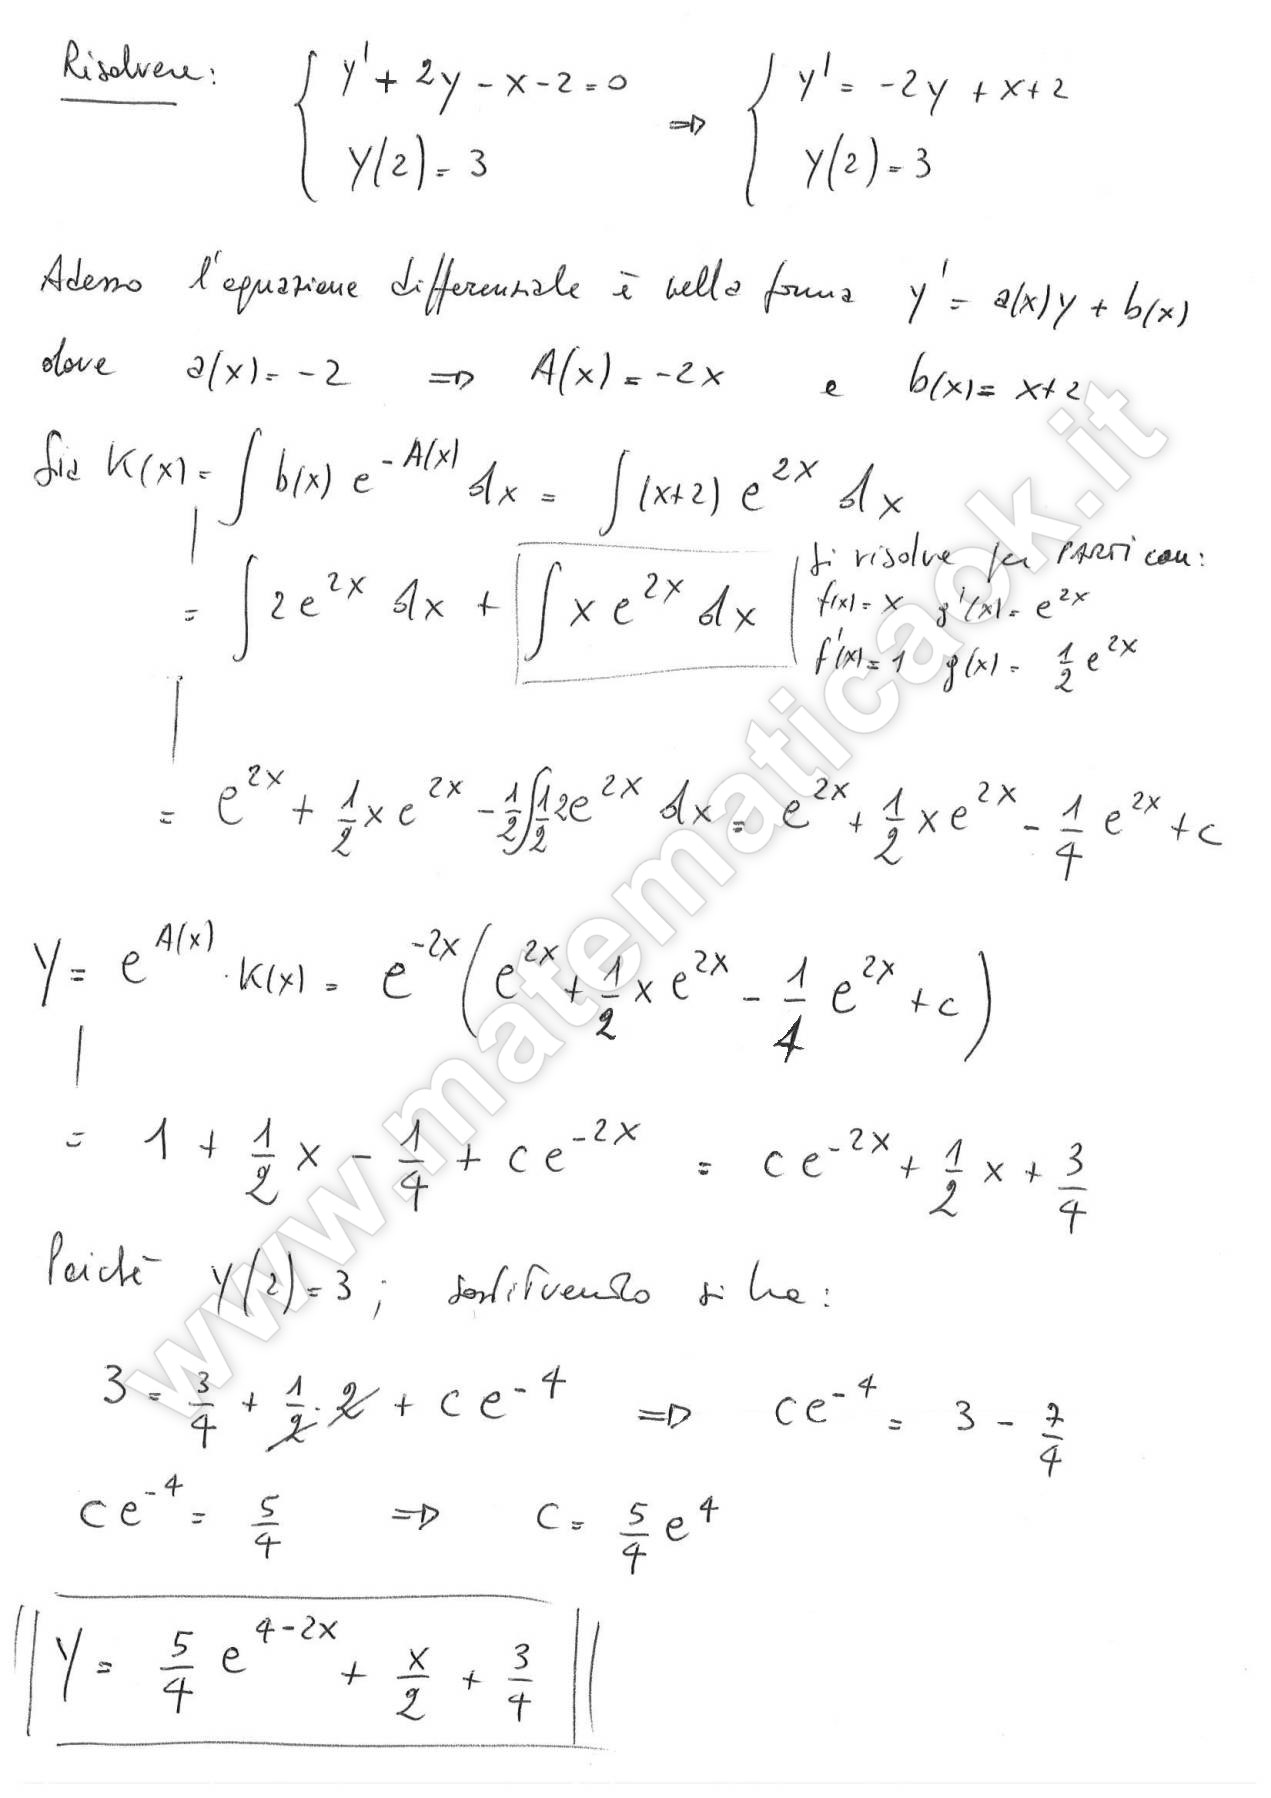 Risolvere: { y' + 2y - x - 2 = 0 ⇒ { y' = -2y + x + 2
y(2) = 3 y(2) = 3
Adesso l'equazione differenziale è nella forma y' = a(x)y + b(x)
dove a(x) = -2 ⇒ A(x) = -2x e b(x) = x+2
Sia K(x) = ∫ b(x) e^{-A(x)} dx = ∫ (x+2) e^{2x} dx
= ∫ 2e^{2x} dx + ∫ x e^{2x} dx
Si risolve per PARTI con:
f(x) = x g'(x) = e^{2x}
f'(x) = 1 g(x) = 1/2 e^{2x}
= e^{2x} + 1/2 x e^{2x} - 1/2 ∫ 1/2 2e^{2x} dx = e^{2x} + 1/2 x e^{2x} - 1/4 e^{2x} + c
y = e^{A(x)} · K(x) = e^{-2x} ( e^{2x} + 1/2 x e^{2x} - 1/4 e^{2x} + c )
= 1 + 1/2 x - 1/4 + c e^{-2x} = c e^{-2x} + 1/2 x + 3/4
Poichè y(2) = 3 ; sostituendo si ha:
3 = 3/4 + 1/2 · 2 + c e^{-4} ⇒ c e^{-4} = 3 - 7/4
c e^{-4} = 5/4 ⇒ c = 5/4 e^4
y = 5/4 e^{4-2x} + x/2 + 3/4
www.matematicaok.it